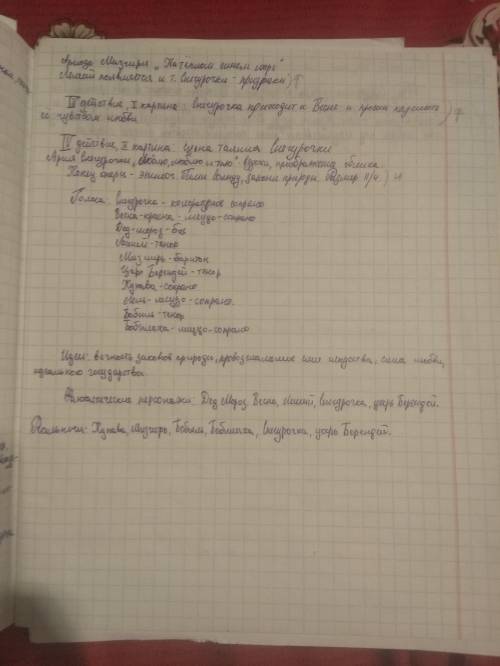 Ариозо Мизгиря „На теплом синем море"
Леший появляется и т. Снегурочки - призраки) Ф
IV действие, I картина: Снегурочка приходит к Весне и просит наделить
её чувством любви
IV действие, II картина: сцена таяния Снегурочки
Ария Снегурочки „Люблю, люблю и таю" вздохи, преображение облика.
Конец оперы - эпилог. Гимн Солнцу, законы природы. Размер 11/4.
Голоса: Снегурочка - колоратурное сопрано
Весна-красна - меццо-сопрано
Дед-мороз - бас
Леший - тенор
Мизгирь - баритон
Царь Берендей - тенор
Купава - сопрано
Лель - меццо-сопрано.
Бобыль - тенор
Бобылиха - меццо-сопрано
Идеи: вечность законов природы, провозглашение силы искусства, сила любви,
идеального государства.
персонажи: Дед Мороз, Весна, Леший, Снегурочка, царь Берендей.
Реальные: Купава, Мизгирь, Бобыль, Бобылиха, Снегурочка, царь Берендей.